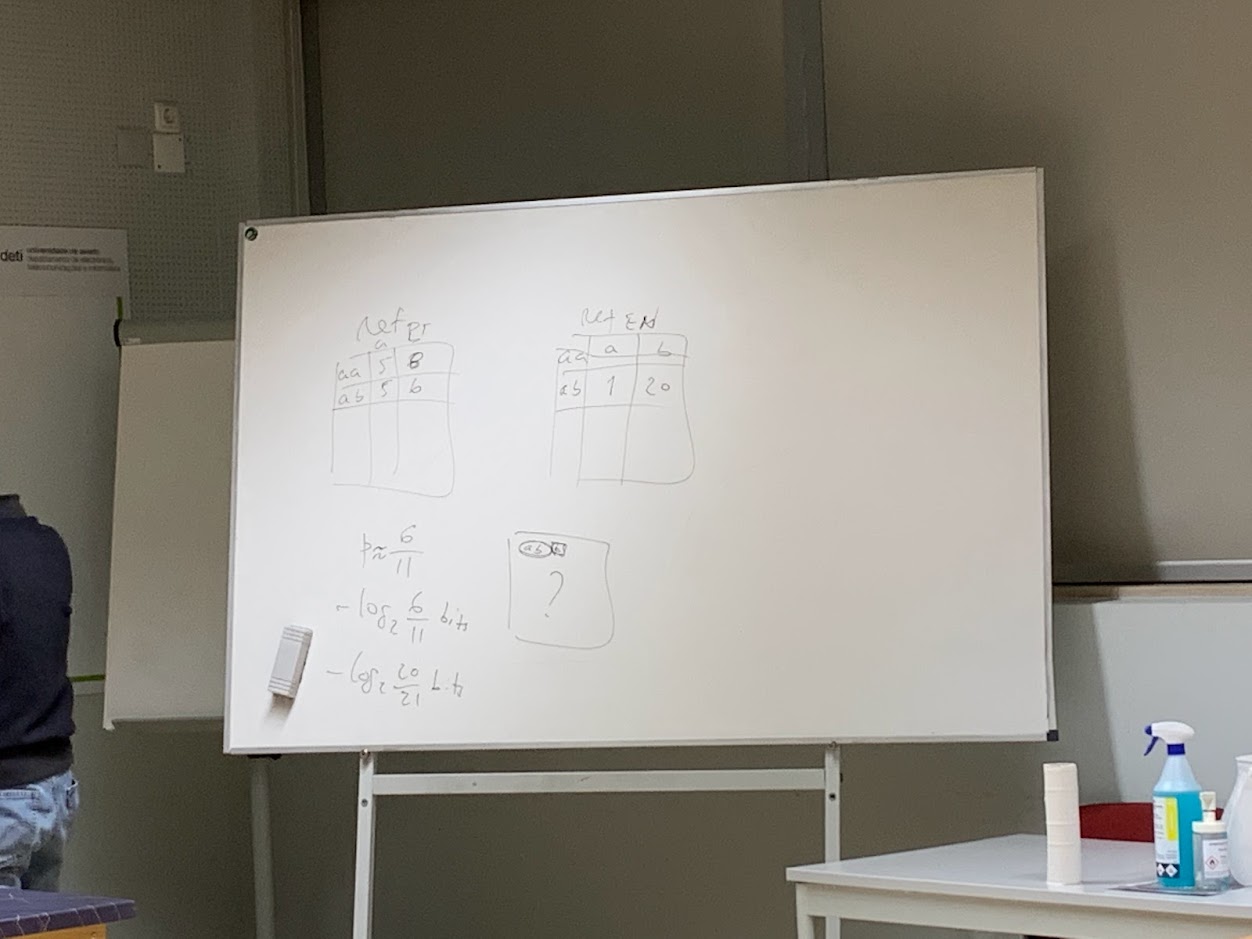 deti
universidade de aveiro
departamento de eletrónica,
telecomunicações e informática
ref PT
a
aa 5 6
ab 5 6
ref EN
aa a b
ab 1 20
p≈ 6/11
- log₂ 6/11 bits
- log₂ 20/21 bits
ab b
?